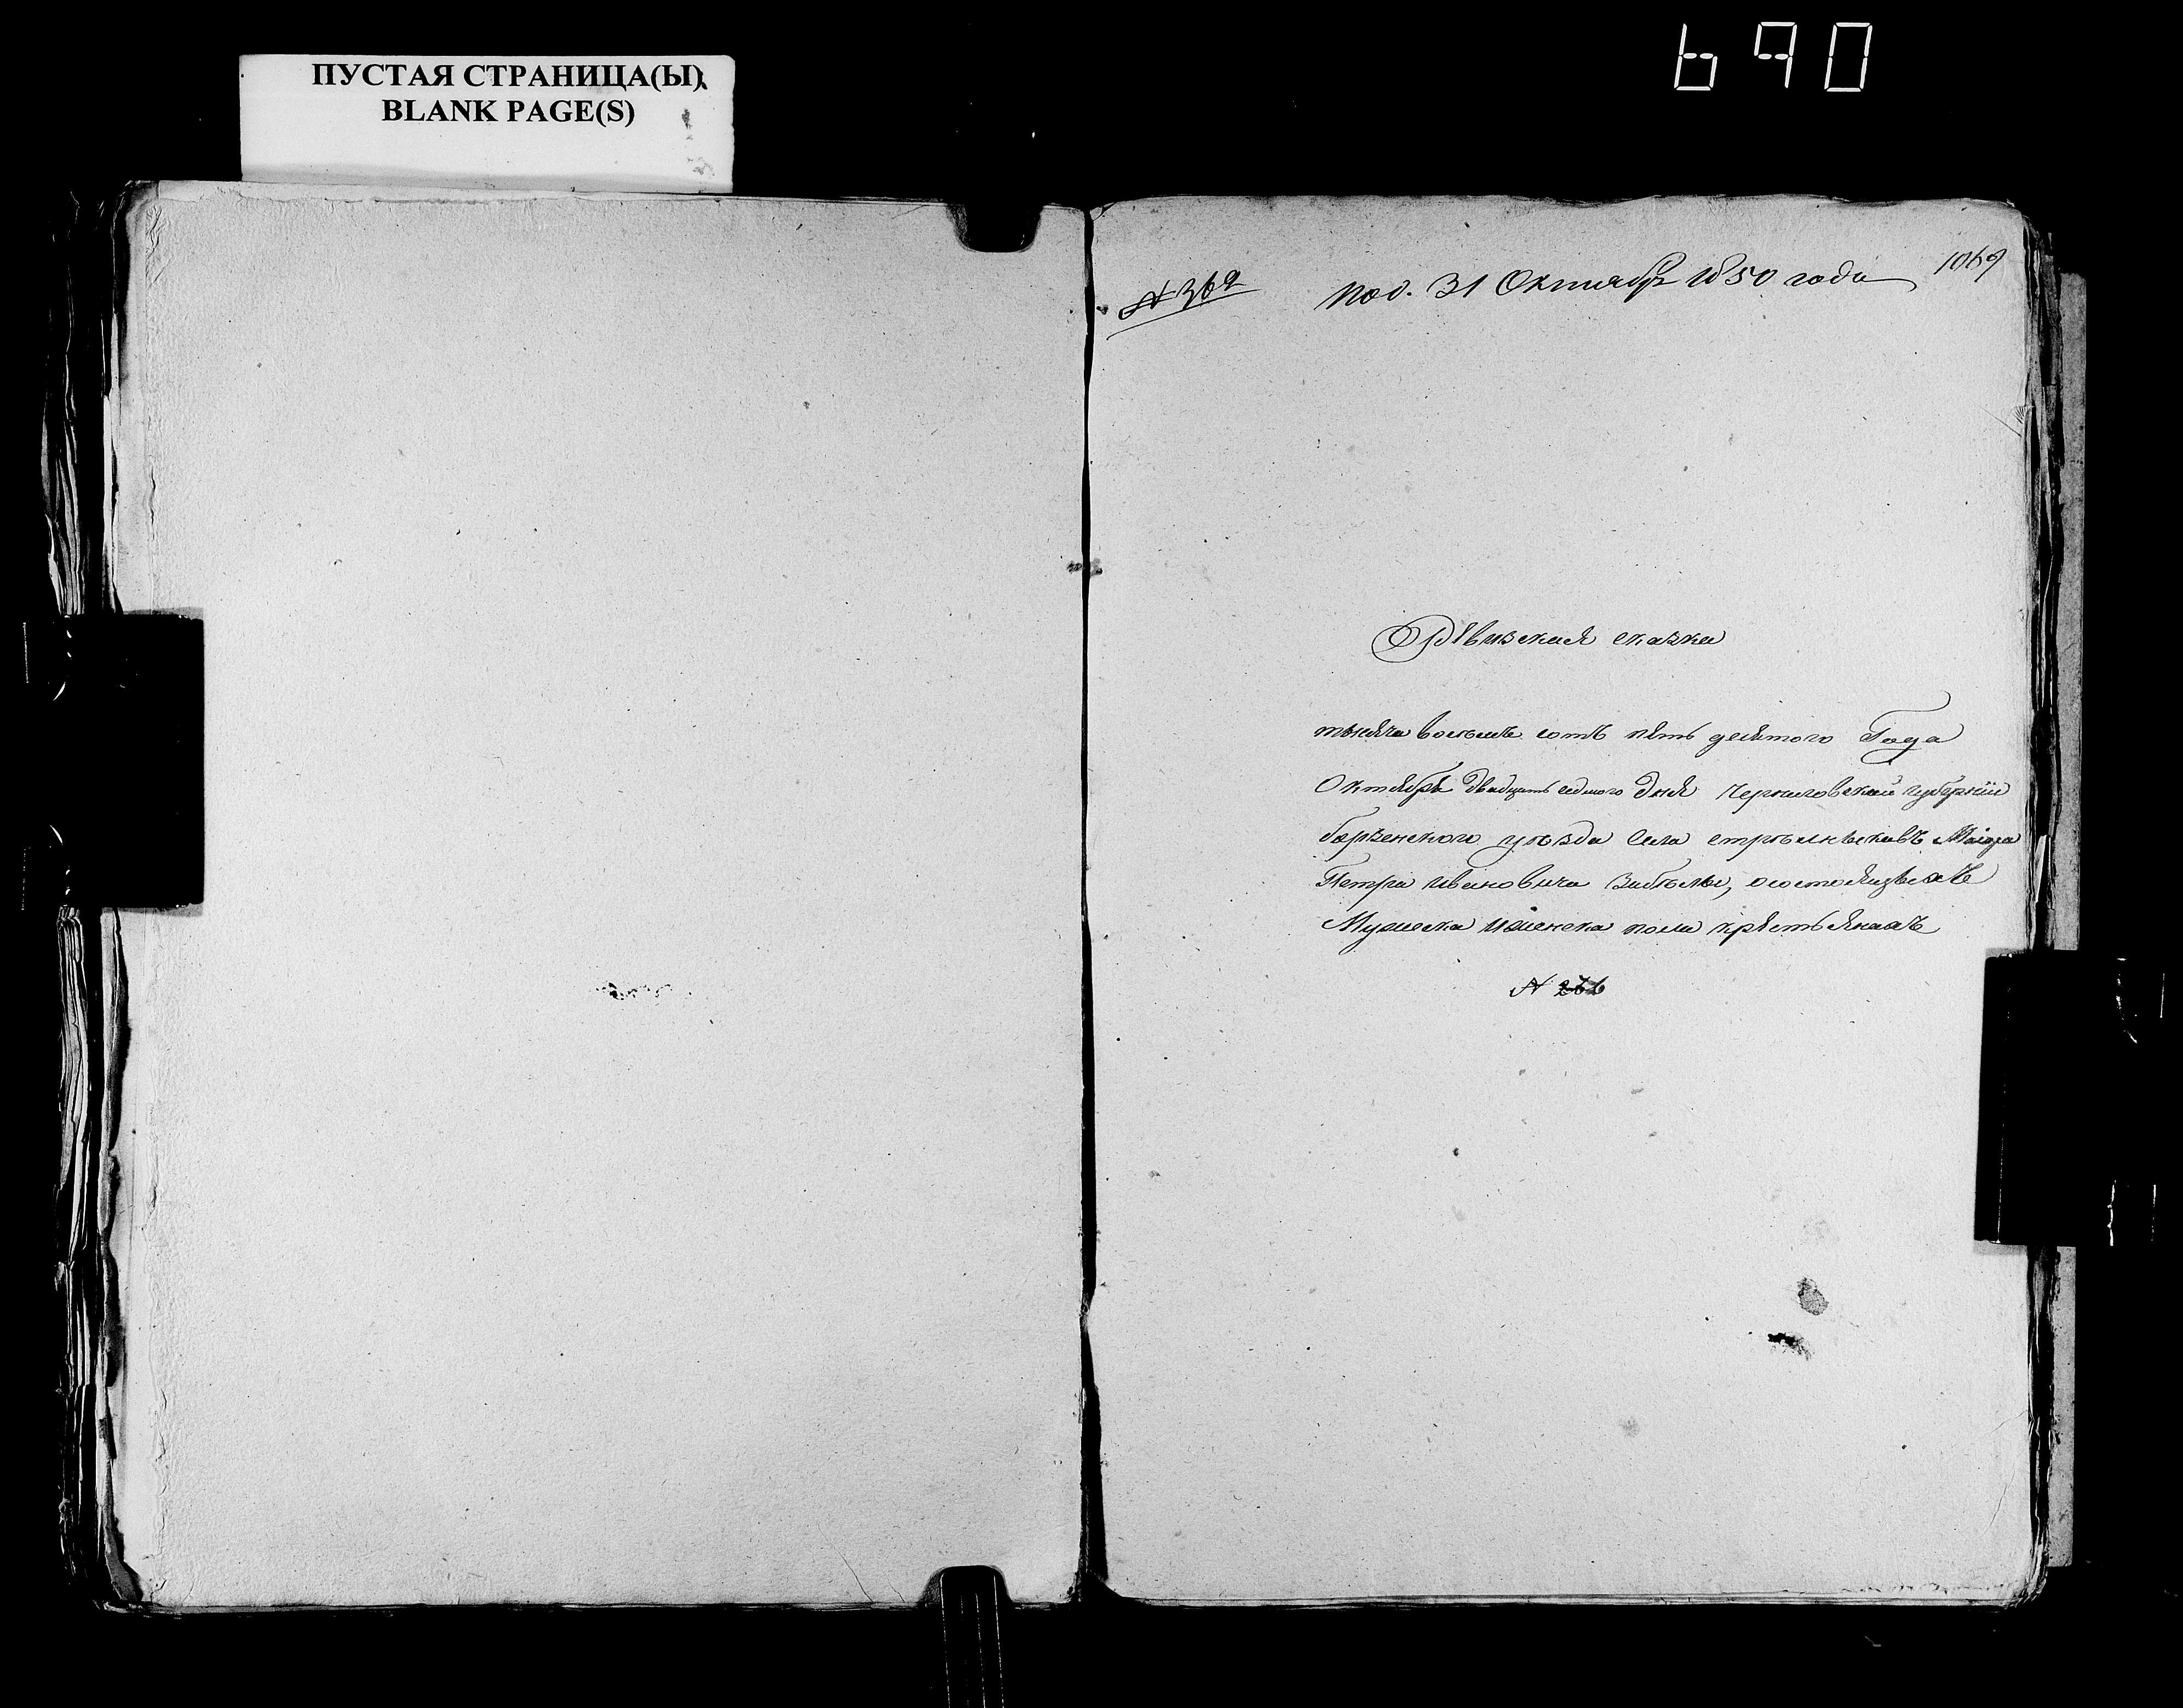 ПУСТАЯ СТРАНИЦА(Ы).
BLANK PAGE(S)
690
1069
№ 369
Под. 31 Октября 1850 года
Ревизская сказка
тысяча восемь сотъ пять десятого Года
Октября двадцать седмого дня Черниговской губернии
борзенского уѣзда Села Маіора
Петра Ивановича Забѣлы, о состоящихъ
Мужеска и женска пола крестьянахъ
№